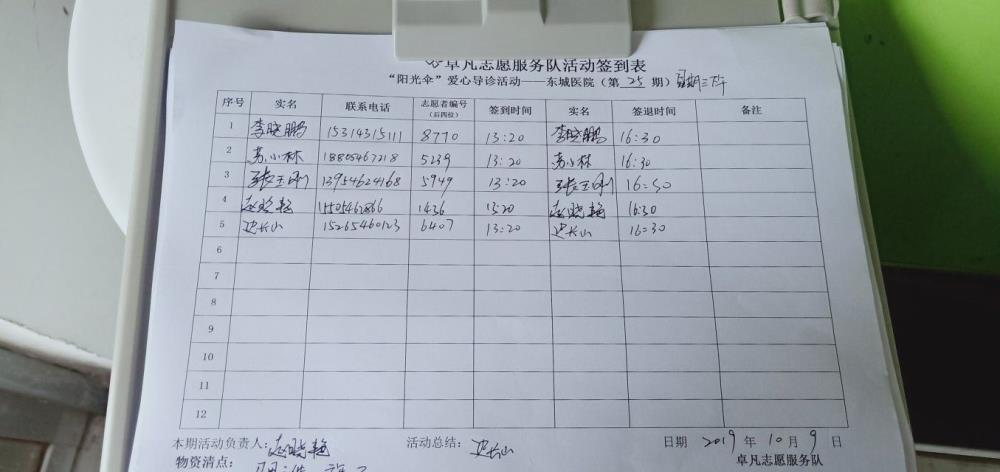 卓凡志愿服务队活动签到表
“阳光伞”爱心导诊活动——东城医院（第 25 期）星期三下午
序号 实名 联系电话 志愿者编号（后四位） 签到时间 实名 签退时间 备注
1 李晓鹏 15314315111 8770 13:20 李晓鹏 16:30
2 苏小林 18805467218 5239 13:20 苏小林 16:30
3 张玉刚 13954624168 5949 13:20 张玉刚 16:30
4 赵晓艳 1436 13:20 赵晓艳 16:30
5 边长山 15265460123 6407 13:20 边长山 16:30
6
7
8
9
10
11
12
本期活动负责人：赵晓艳 活动总结：边长山 日期 2019 年 10 月 9 日
物资清点： 卓凡志愿服务队